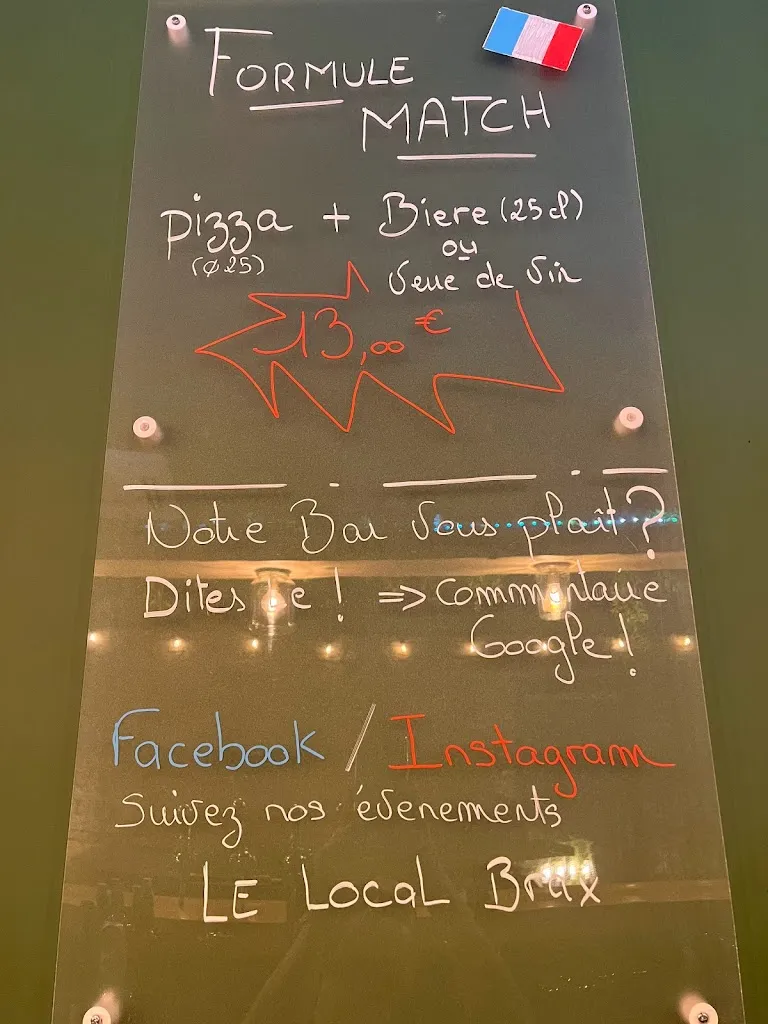 FORMULE
MATCH
pizza + Biere (25 cl)
(Ø25)
ou
Verre de Vin
13,00 €
Notre Bar Vous plaît ?
Dites Le ! => Commentaire
Google !
Facebook / Instagram
Suivez nos évenements
LE LOCAL Brax